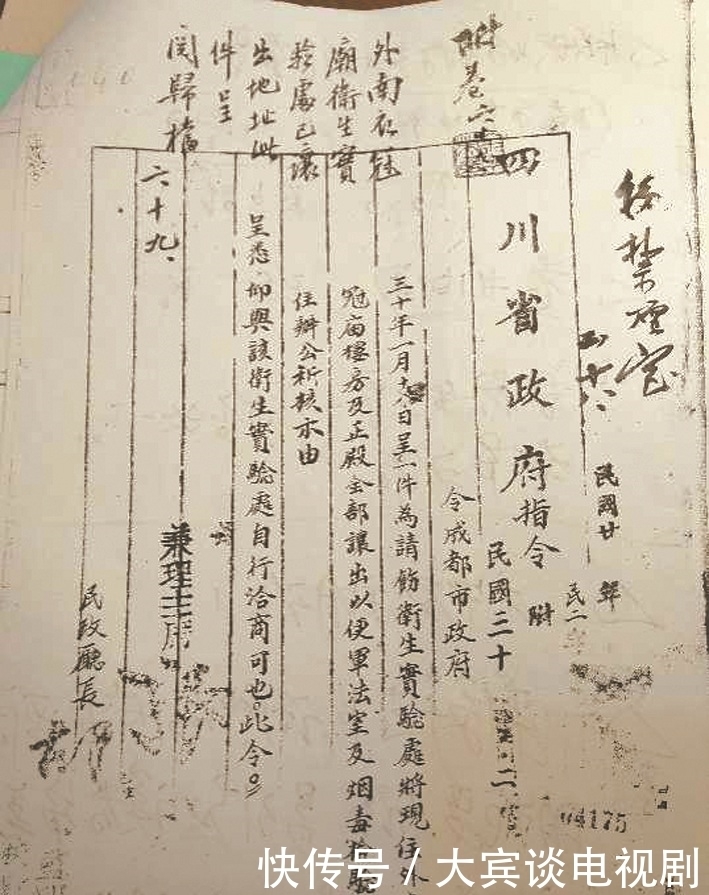 附卷六
外南衣冠
廟衛生實
驗處已讓
出地址此
件呈
閱歸檔
六十九、
四川省政府指令
民國廿 年
民二
附
民國三十
令成都市政府
三十年一月 日呈一件為請飭衛生實驗處將現住外
冠庙樓房及正殿全部讓出以便軍法室及烟毒
住辦公祈核示由
呈悉仰與該衛生實驗處自行洽商可也。此令。
兼理主席
民政廳長
04175
快传号 / 大宾谈电视剧